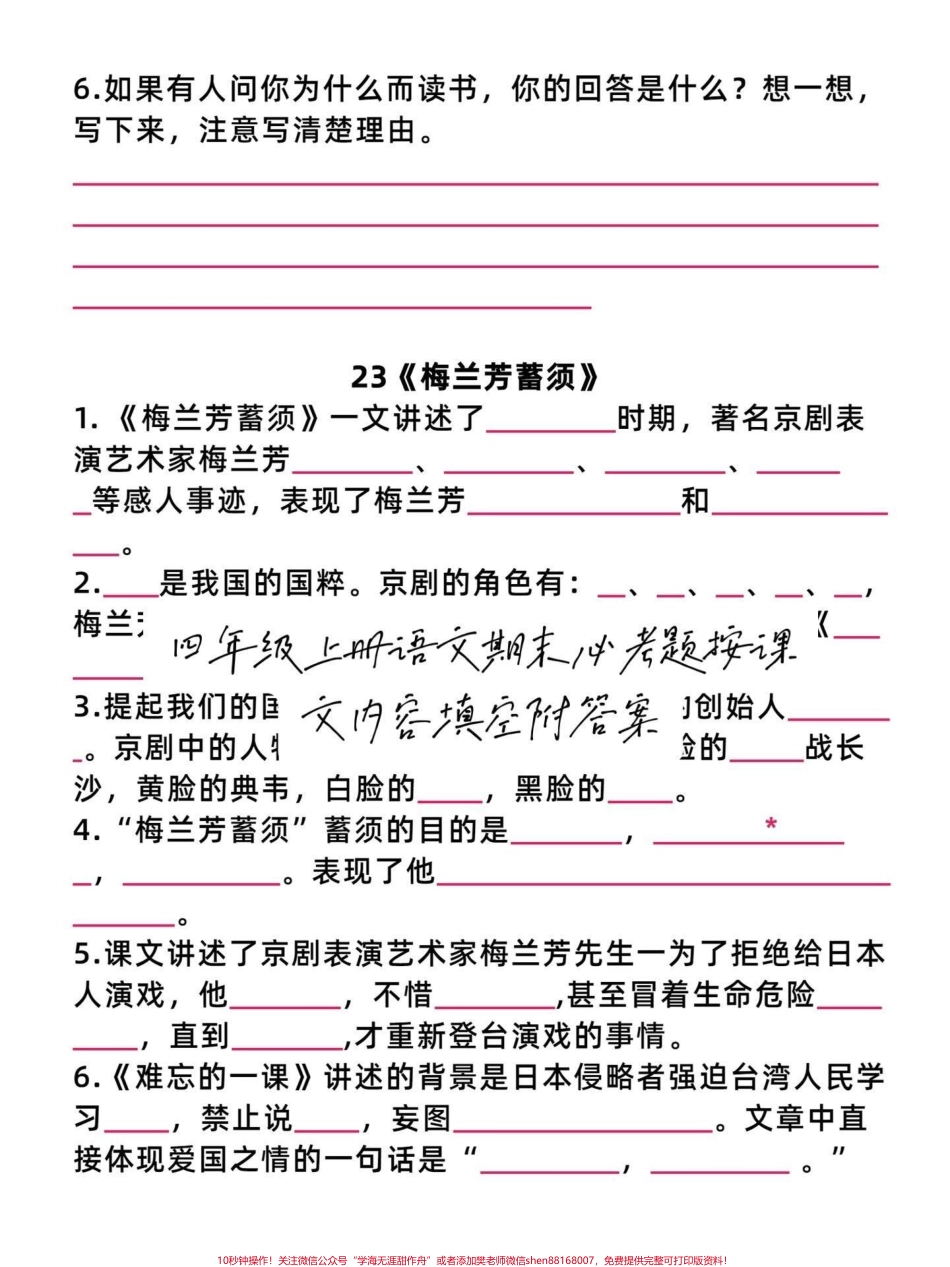 6.如果有人问你为什么而读书，你的回答是什么？想一想，
写下来，注意写清楚理由。
23《梅兰芳蓄须》
1.《梅兰芳蓄须》一文讲述了________时期，著名京剧表
演艺术家梅兰芳________、________、________、______
_等感人事迹，表现了梅兰芳______________和____________
___。
2.____是我国的国粹。京剧的角色有：__、__、__、__、__，
梅兰 《___
四年级上册语文期末必考题按课
_____
3.提起我们的国 的创始人_______
文内容填空附答案
_。京剧中的人物 脸的_____战长
沙，黄脸的典韦，白脸的____，黑脸的____。
4.“梅兰芳蓄须”蓄须的目的是________，________*_____
_，__________。表现了他______________________________
_______。
5.课文讲述了京剧表演艺术家梅兰芳先生一为了拒绝给日本
人演戏，他_______，不惜________,甚至冒着生命危险____
____，直到_______,才重新登台演戏的事情。
6.《难忘的一课》讲述的背景是日本侵略者强迫台湾人民学
习____，禁止说____，妄图_________________。文章中直
接体现爱国之情的一句话是“_________，_________。”
10秒钟操作！关注微信公众号“学海无涯甜作舟”或者添加樊老师微信shen88168007，免费提供完整可打印版资料！